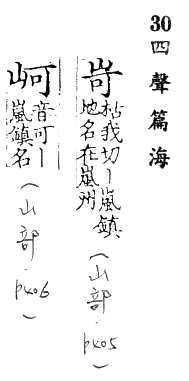 30四聲篇海
岢
枯我切丨嵐鎮
地名在嵐州
(山部.p405)
岢
音可丨
嵐鎮名
(山部.p406)